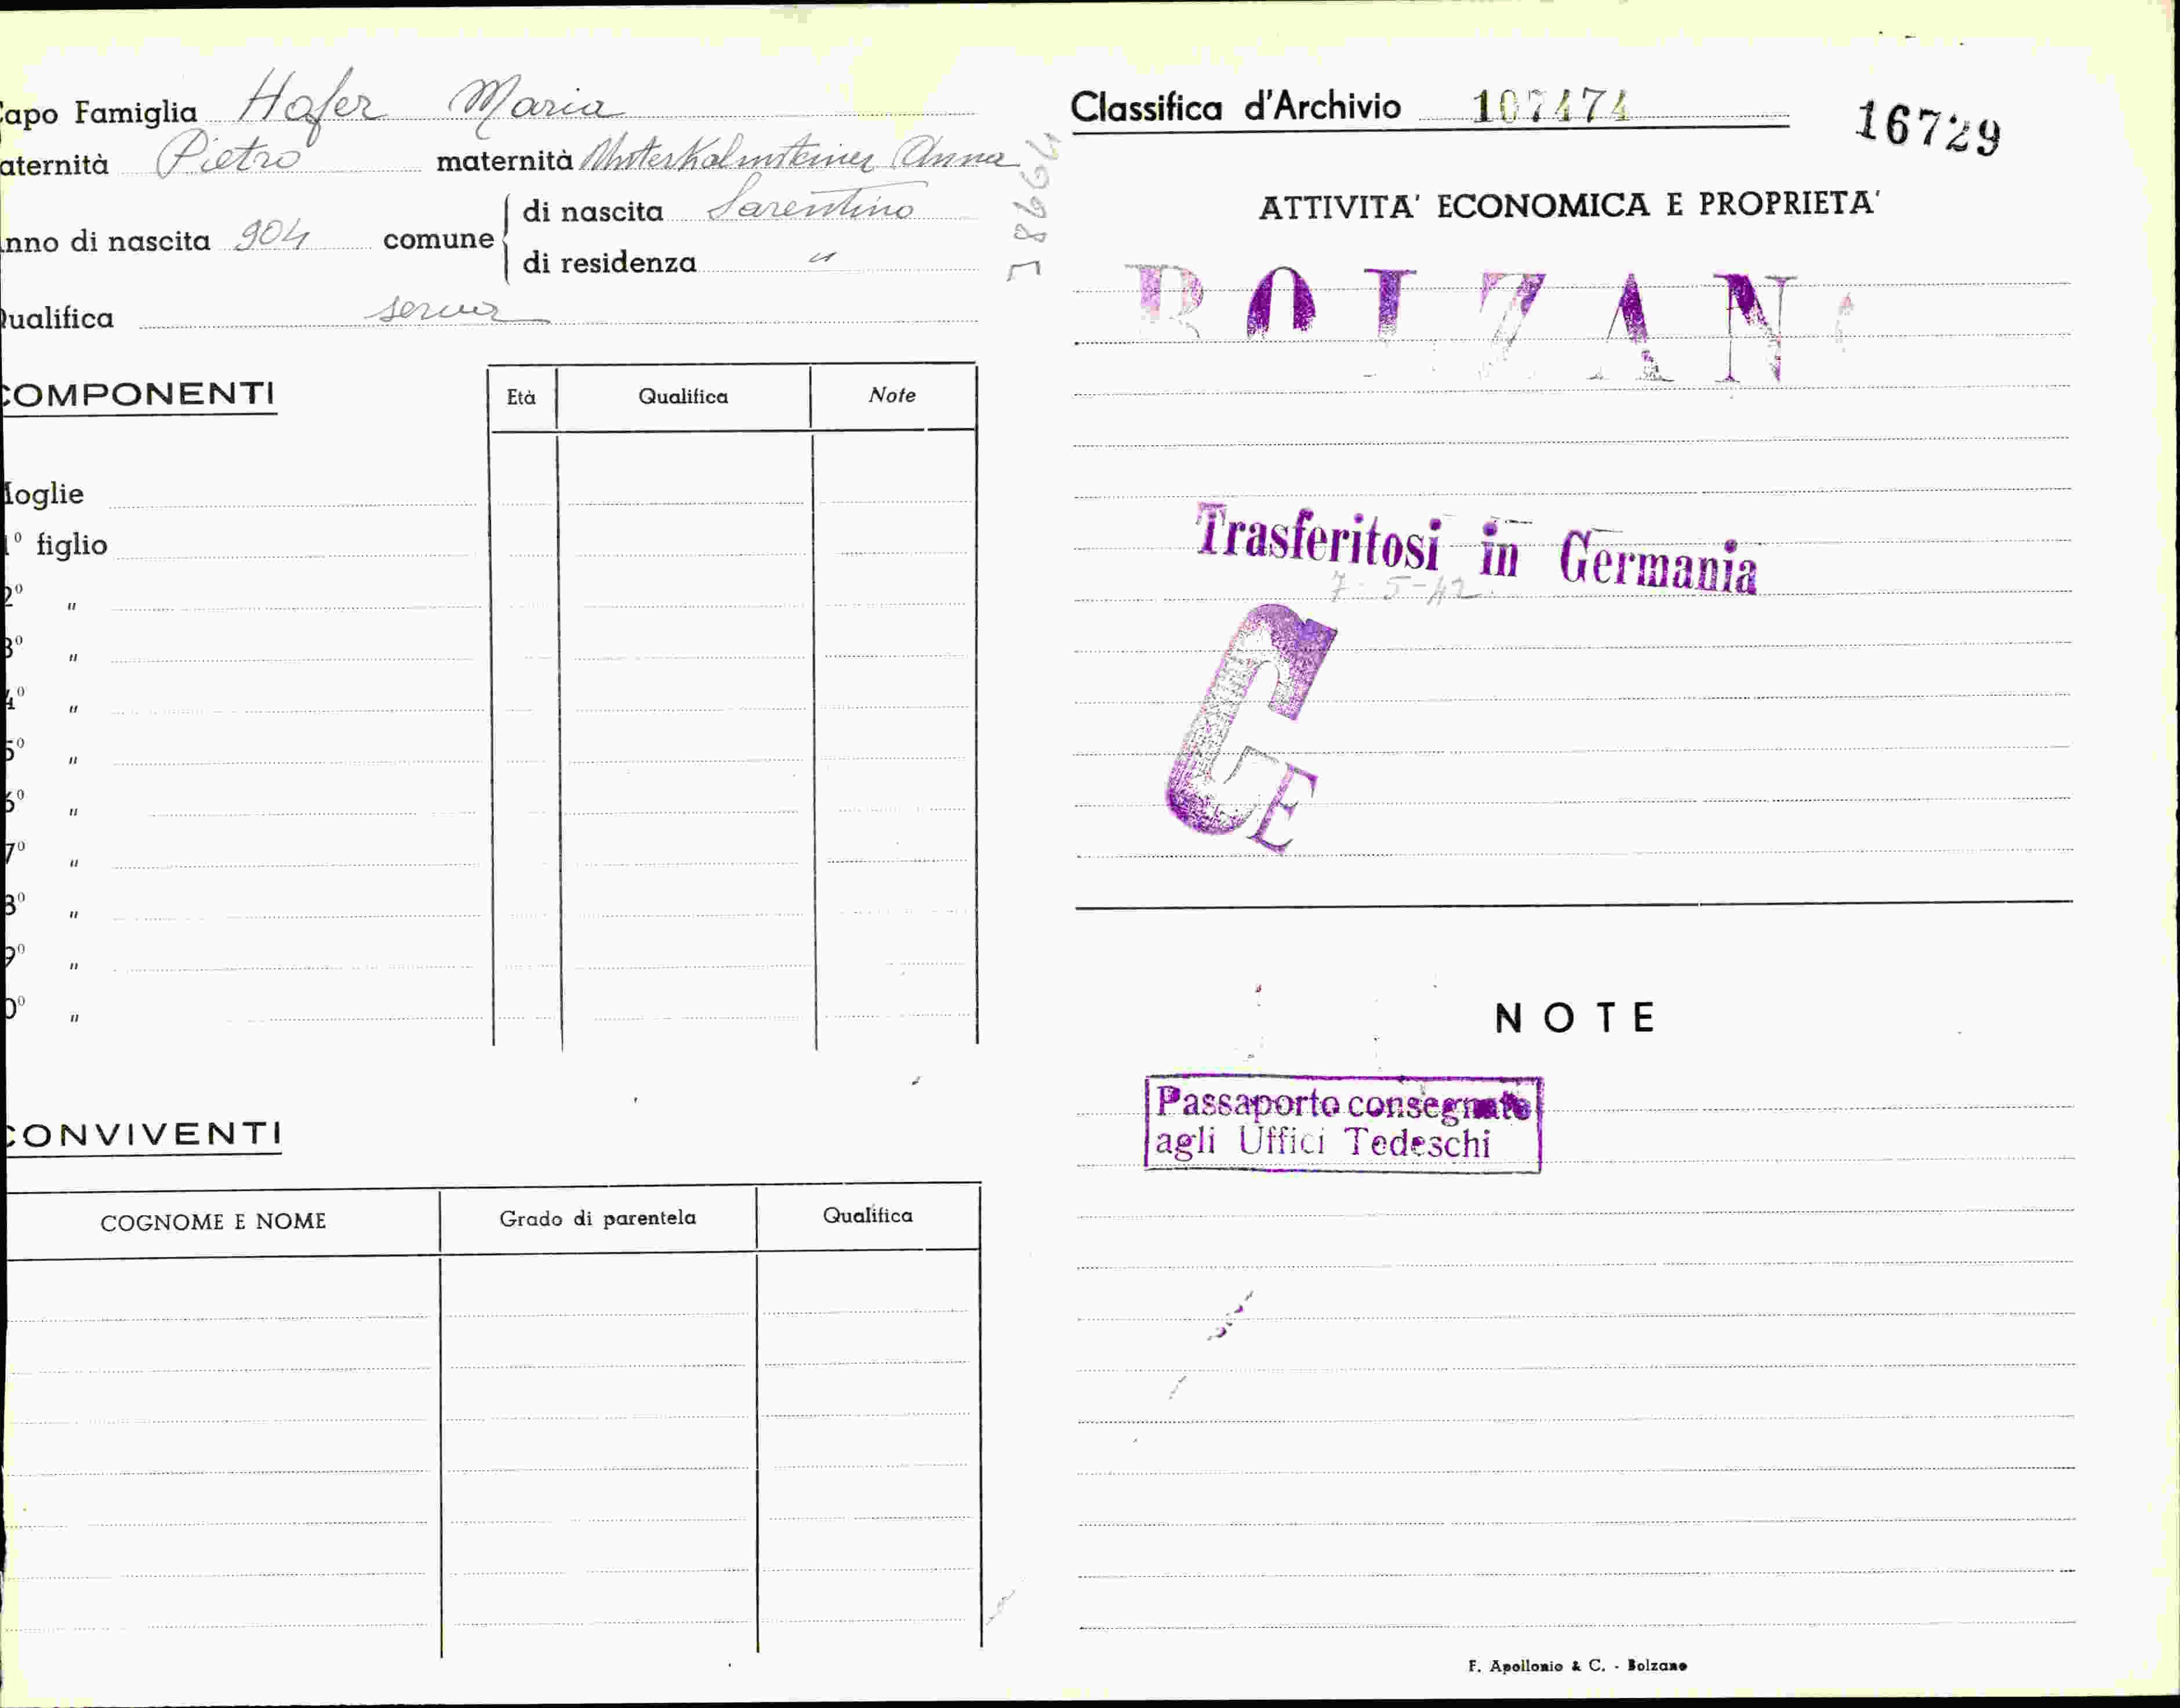 apo Famiglia Hofer Maria
aternità Pietro maternità Unterkalmsteiner Anna
nno di nascita 904 comune di nascita Sarentino
di residenza "
ualifica serva
COMPONENTI
Età Qualifica Note
oglie
1° figlio
2° "
3° "
4° "
5° "
6° "
7° "
8° "
9° "
0° "
CONVIVENTI
COGNOME E NOME Grado di parentela Qualifica
Classifica d'Archivio 107474
16729
ATTIVITA' ECONOMICA E PROPRIETA'
BOLZAN
Trasferitosi in Germania
7-5-42
C
E
NOTE
Passaporto consegnato
agli Uffici Tedeschi
F. Apollonio & C. - Bolzano